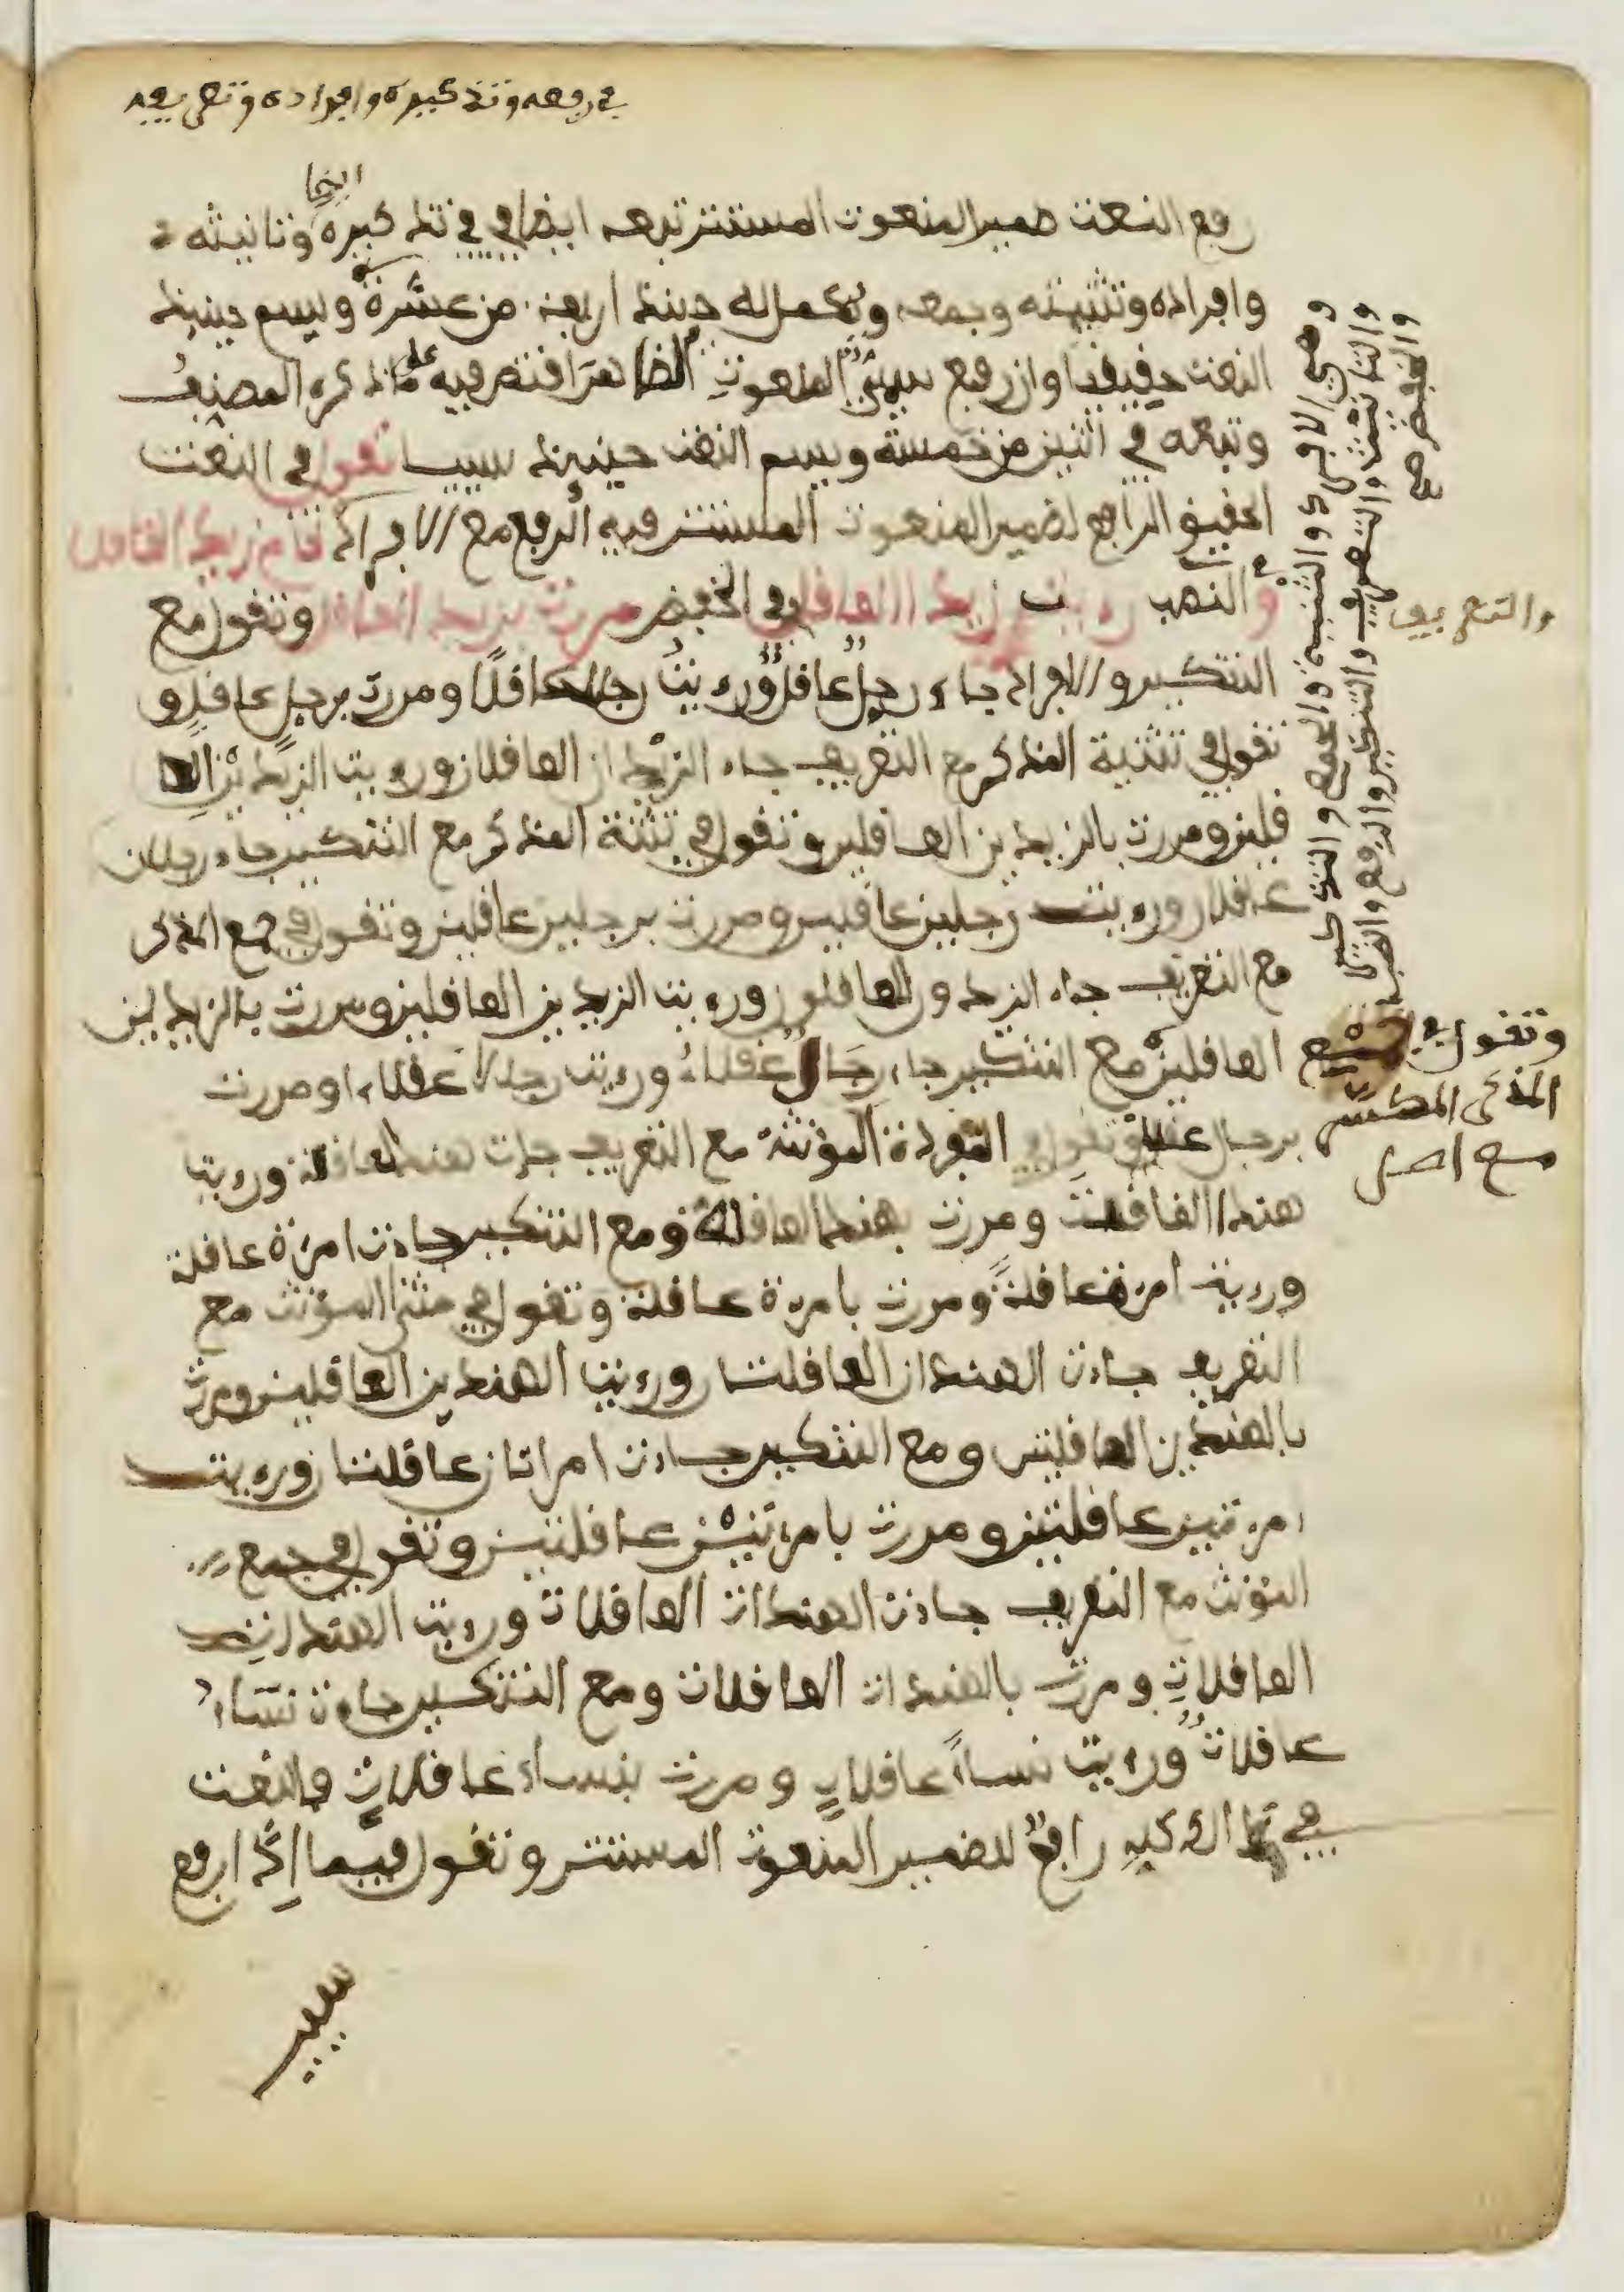 في رفعه وتذكيره وافراده وتعريفه
ايضا
رفع النعت ضمير المنعوت المستتر تبعه ايضا في في تذكيره وتانيثه
وافراده وتثنيته وجمعه ويكمل له حينئذ اربعة من عشرة ويسم حينئذ
النعت حقيقيا وان رفع سببي المنعوت الظاهر اقتصر فيه على ما ذكره المصنف
وتبعه في اثنين من خمسة ويسم النعت حينئذ سببيا تقول في النعت
الحقيق الرافع لضمير المنعوت المستتر فيه الرفع مع الافراد قام زيد العاقل
و في النصب رءيت زيدا العاقل وفي الخفض مررت بزيد العاقل وتقول مع
التنكير والافراد جاء رجل عاقل ورءيت رجلا عاقلا ومررت برجل عاقل و
تقول في تثنية المذكر مع التعريف جاء الزيدان العاقلان ورءيت الزيدين العا
قلين ومررت بالزيدين العاقلين وتقول في تثنة المذكر مع التنكير جاء رجلان
عاقلان ورءيت رجلين عاقلين ومررت برجلين عاقلين وتقول في جمع المذكر
مع التعريف جاء الزيدون العاقلون ورءيت الزيدين العاقلين ومررت بالزيدين
العاقلين ومع التنكير جاء رجال عقلاء ورءيت رجالا عقلاء ومررت
برجال عقلاء وتقول في المفردة المؤنثة مع التعريف جاءت هند العاقلة ورءيت
هندا العاقلة ومررت بهند العاقلة ومع التنكير جاءت امرءة عاقلة
ورءيت امرءة عاقلة ومررت بامرءة عاقلة وتقول في مثنى المؤنث مع
التعريف جاءت الهندان العاقلتان ورءيت الهندين العاقلتين ومررت
بالهندين العاقلتين ومع التنكير جاءت امراتان عاقلتان ورءيت
امرءتين عاقلتين ومررت بامرءتين عاقلتين وتقول في جمع
المؤنث مع التعريف جاءت الهندات العاقلات ورءيت الهندات
العاقلات ومررت بالهندات العاقلات ومع التنكير جاءت نساء
عاقلات ورءيت نساء عاقلات ومررت بنساء عاقلات فالنعت
في ذلك كله رافع لضمير المنعوت المستتر وتقول فيما اذا رفع
وهي الافراد والتثنية والجمع والتذكير
والتانيث والتعريف والتنكير والرفع والنصب
والخفض صح
والتعريف
وتقول في جمع
المذكر المكسر
صح اصل
سببي